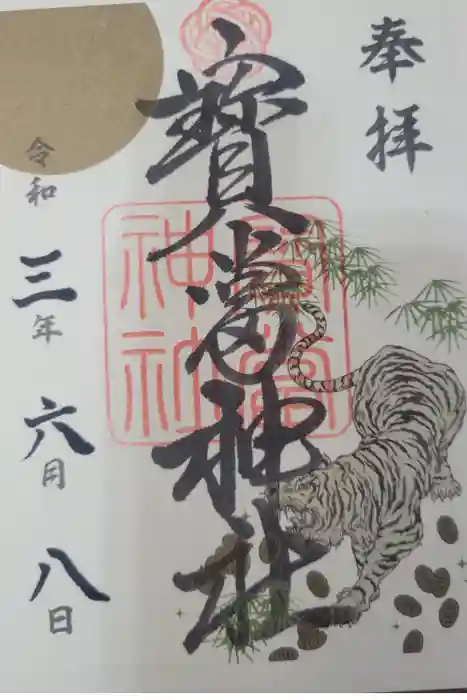 奉拝
寶當神社
寶當
神社
令和三年六月八日